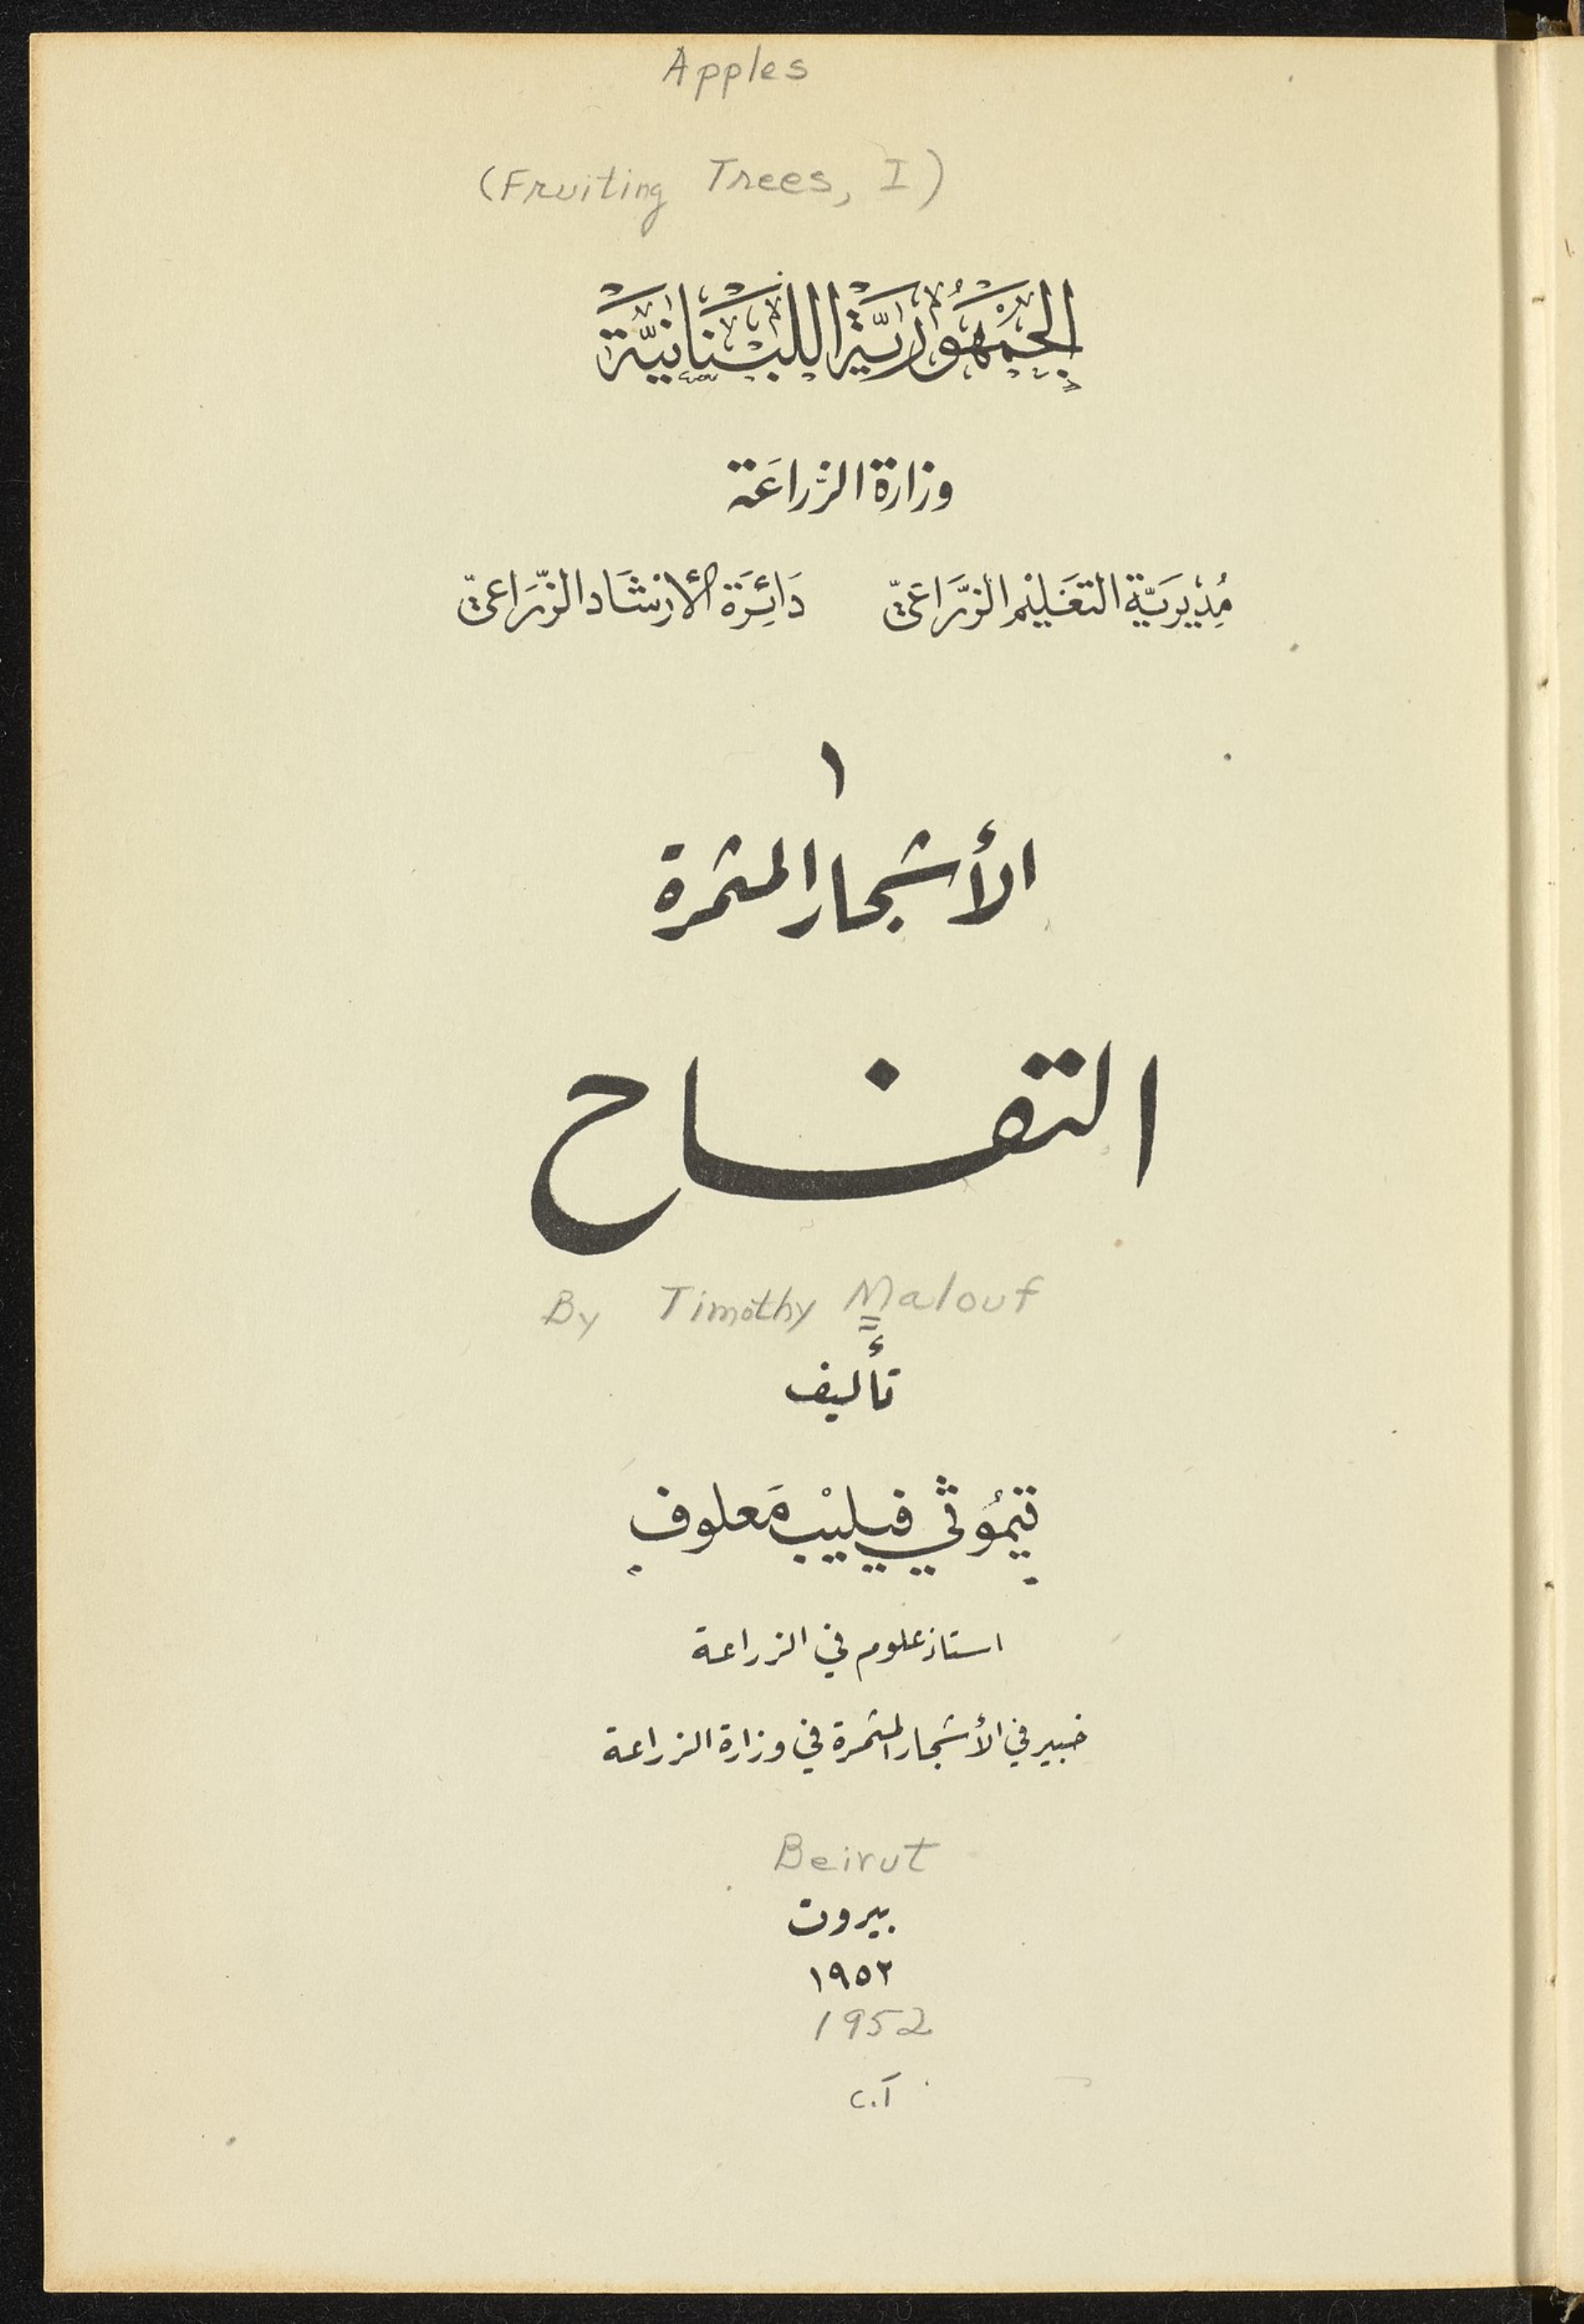 Apples
(Fruiting Trees, I)
الجَمْهُورِيَّة اللبْنَانِيَّة
وزارة الزراعَة
مُدِيْرِيَّة التعَليْم الزّرَاعيّ دَائِرَة الأرْشَاد الزّرَاعيّ
١
الأشجار المثمرة
التفاح
By Timothy Malouf
تأليف
تيمُوثي فيليبْ مَعلوف
استاذ علوم في الزراعة
خبير في الأشجار المثمرة في وزارة الزراعة
Beirut
بيروت
١٩٥٢
1952